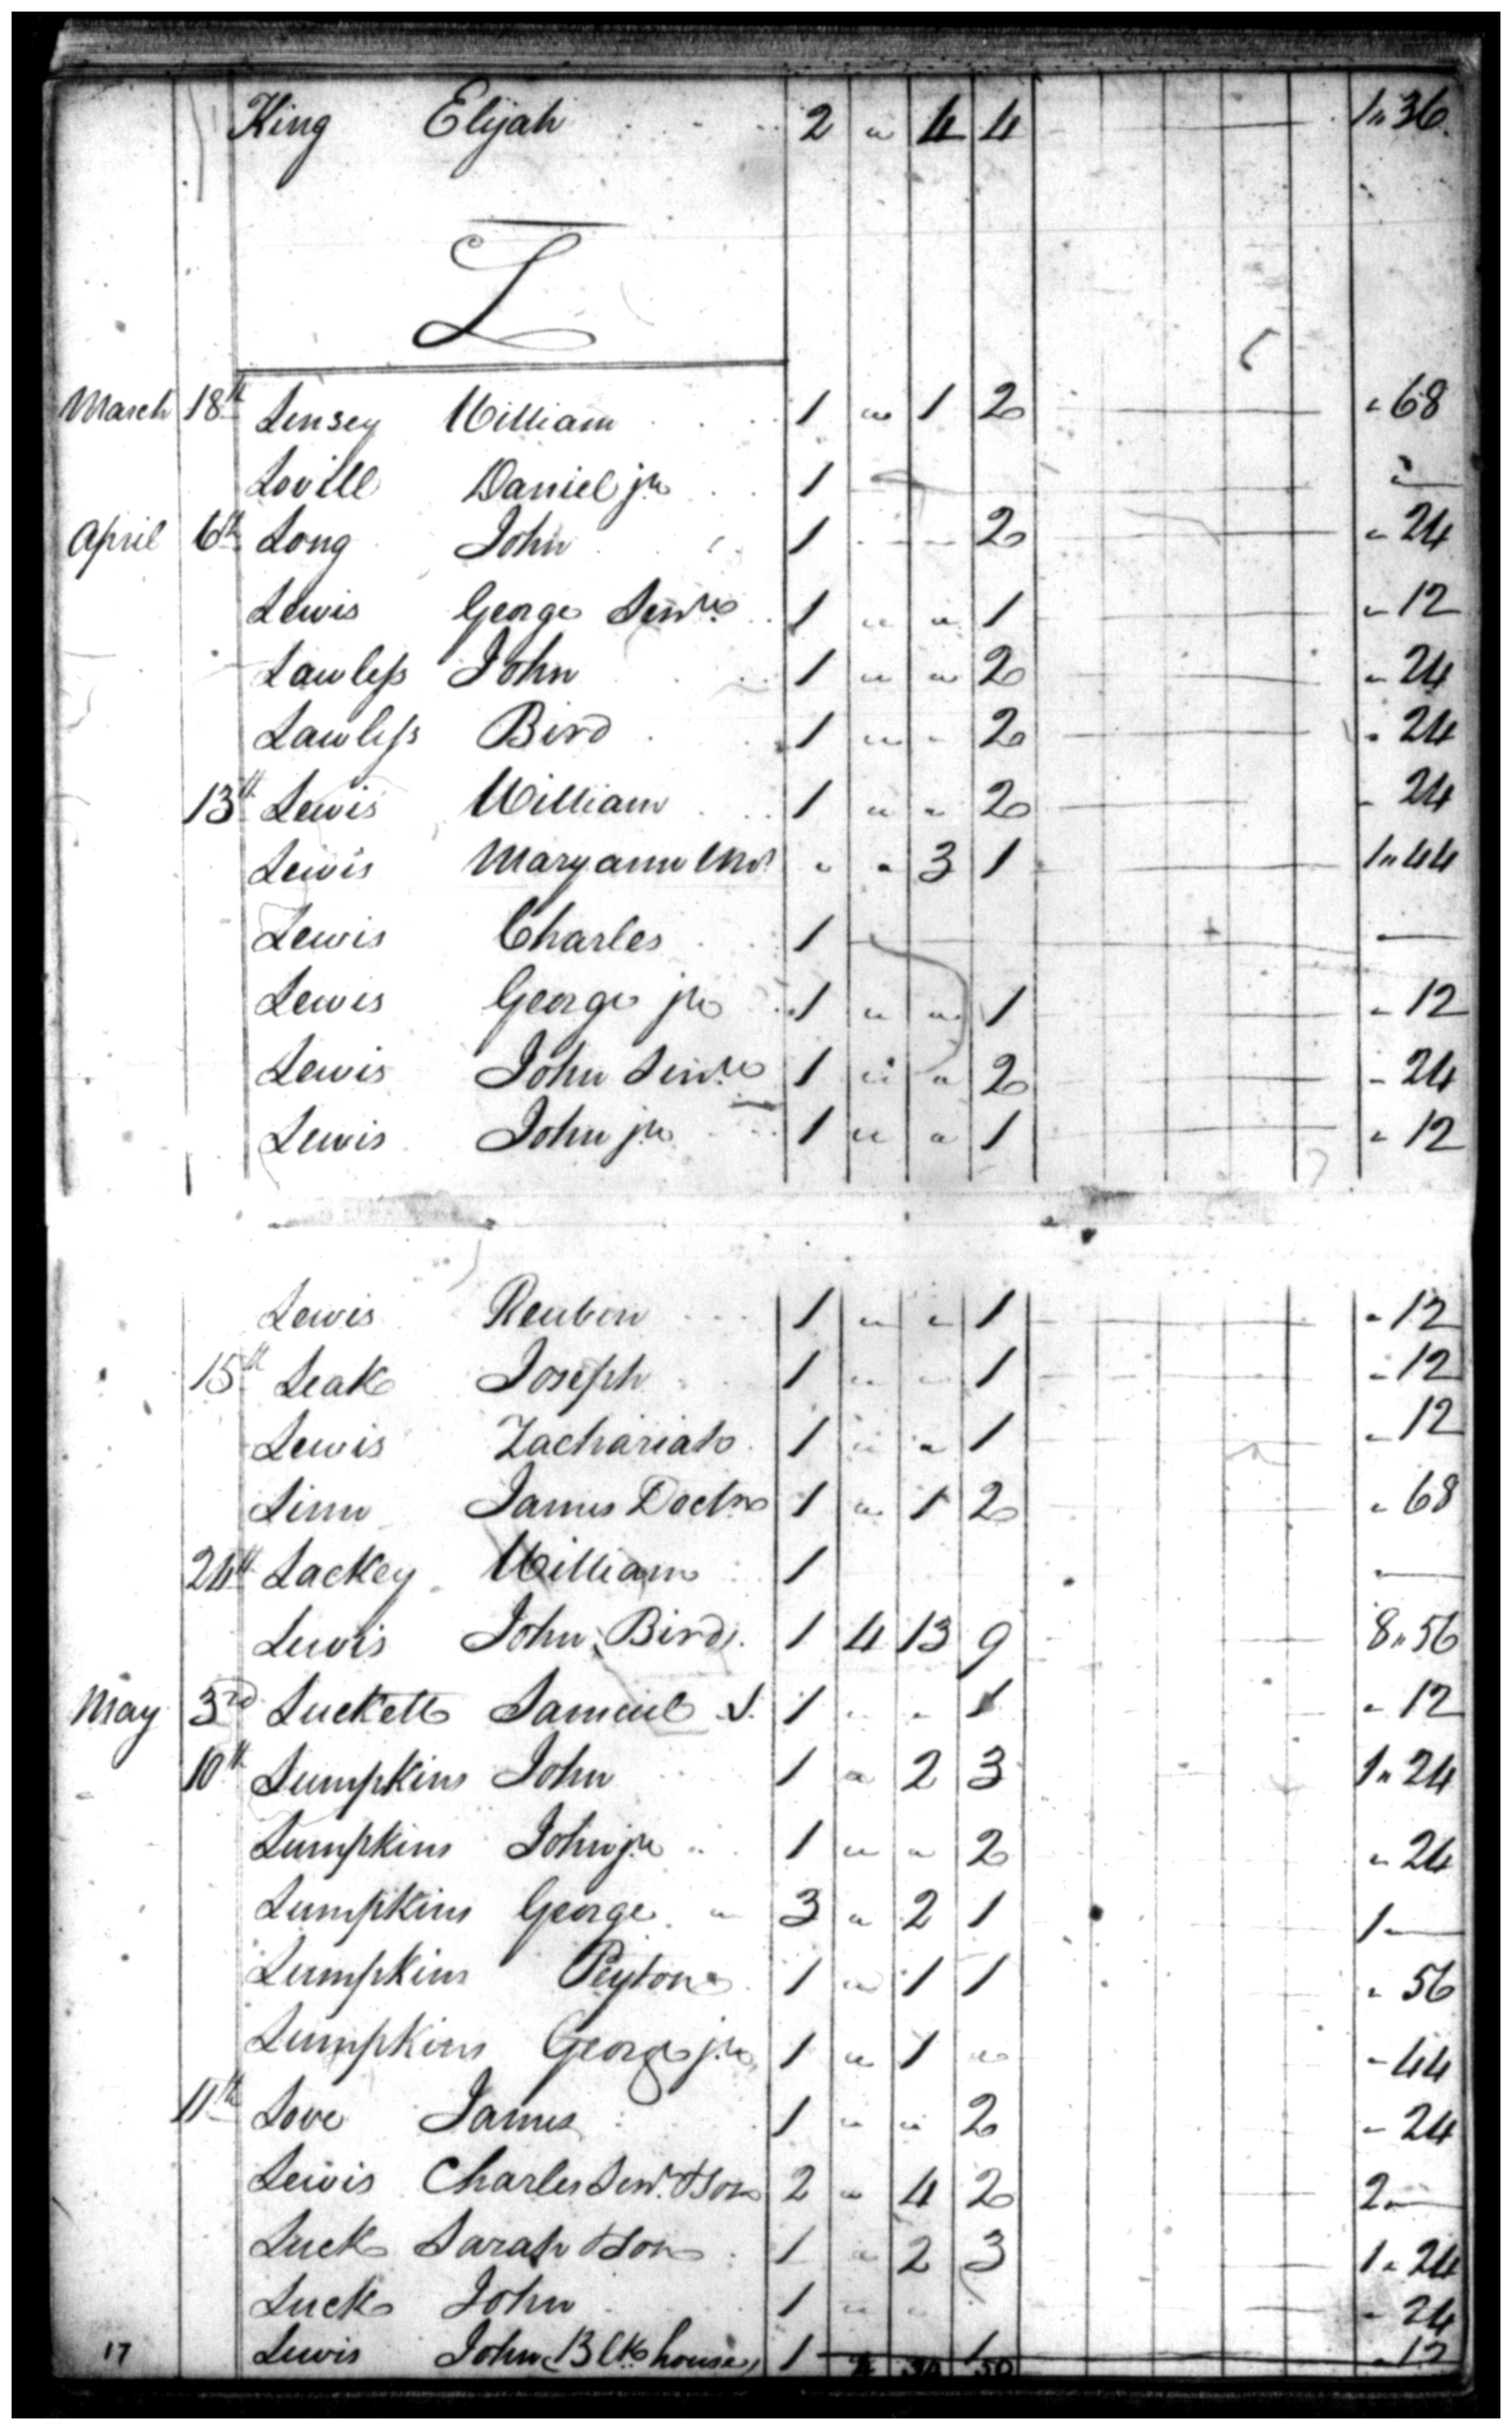 King Elijah 2 " 4 4 1"36
L
March 18th Linsey William 1 " 1 2 " 68
Lovell Daniel jr 1 "
April 6th Long John 1 2 " 24
Lewis George Senr 1 " " 1 " 12
Lawless John 1 " " 2 " 24
Lawless Bird 1 " " 2 " 24
13th Lewis William 1 " " 2 " 24
Lewis Maryann Mrs " " 3 1 1"44
Lewis Charles 1
Lewis George jr 1 " " 1 " 12
Lewis John Senr 1 " " 2 " 24
Lewis John jr 1 " " 1 " 12
Lewis Reuben 1 " " 1 " 12
15th Leak Joseph 1 " " 1 " 12
Lewis Zachariah 1 " " 1 " 12
Linn James Doctr 1 " 1 2 " 68
24th Lackey William 1
Lewis John, Bird. 1 4 13 9 8"56
May 3rd Luckett Samuel S. 1 " " 1 " 12
10th Lumpkins John 1 " 2 3 1"24
Lumpkins John jr 1 " " 2 " 24
Lumpkins George 3 " 2 1 1
Lumpkins Peyton 1 " 1 1 " 56
Lumpkins George jr 1 " 1 " " 44
11th Love James 1 " " 2 " 24
Lewis Charles Senr. & Son 2 " 4 2 2"
Luck Sarah & Son 1 " 2 3 1"24
Luck John 1 " " " 24
Lewis John (Blk house) 1 1 " 12
17 50